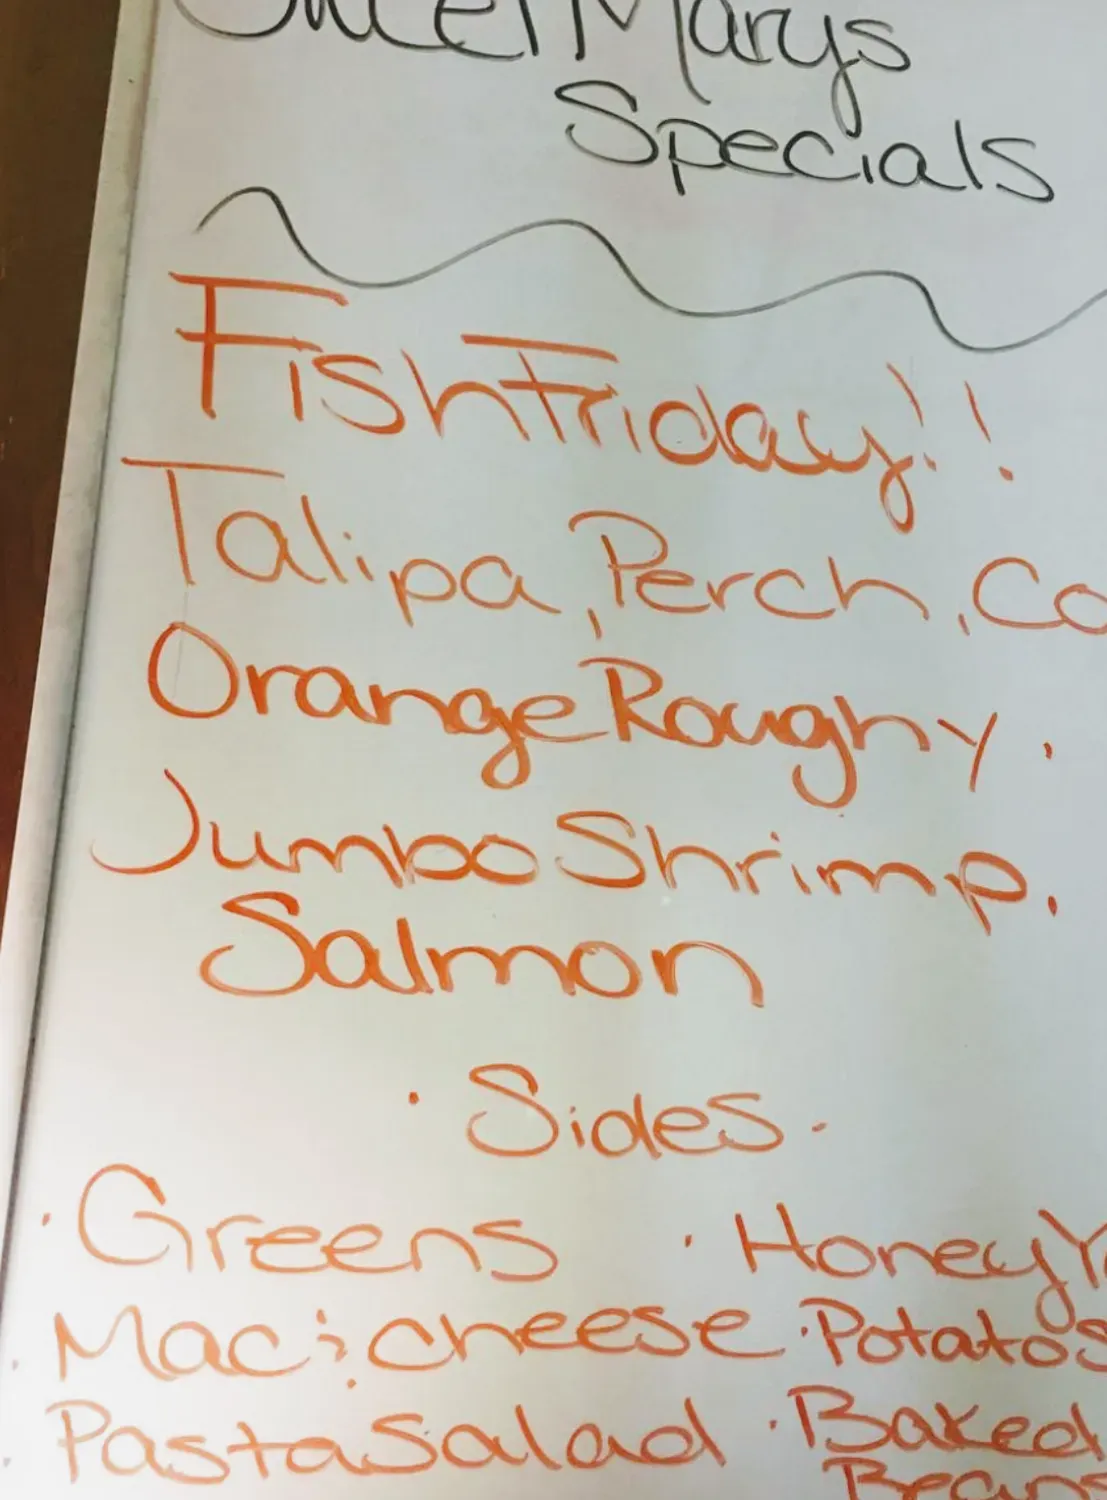 Marys
Specials
Fish Friday!!
Talipa, Perch, Co
Orange Roughy.
Jumbo Shrimp.
Salmon
· Sides ·
· Greens · Honey Y
· Mac & cheese · Potatos
· Pasta Salad · Baked
Beans